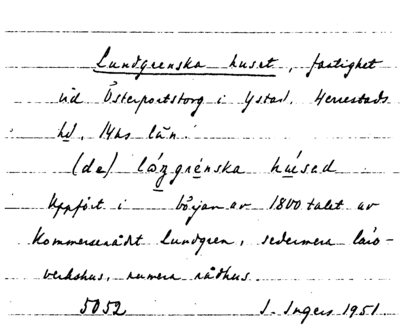 Lundgrenska huset, fastighet
vid Österportstorg i Ystad. Herrestads
hd, Mhs län.
(de) lóŋgrénska húsed
Uppfört i början av 1800talet av
Kommerserådet Lundgren, sedermera läro-
verkshus, numera rådhus.
5052 I. Ingers 1951